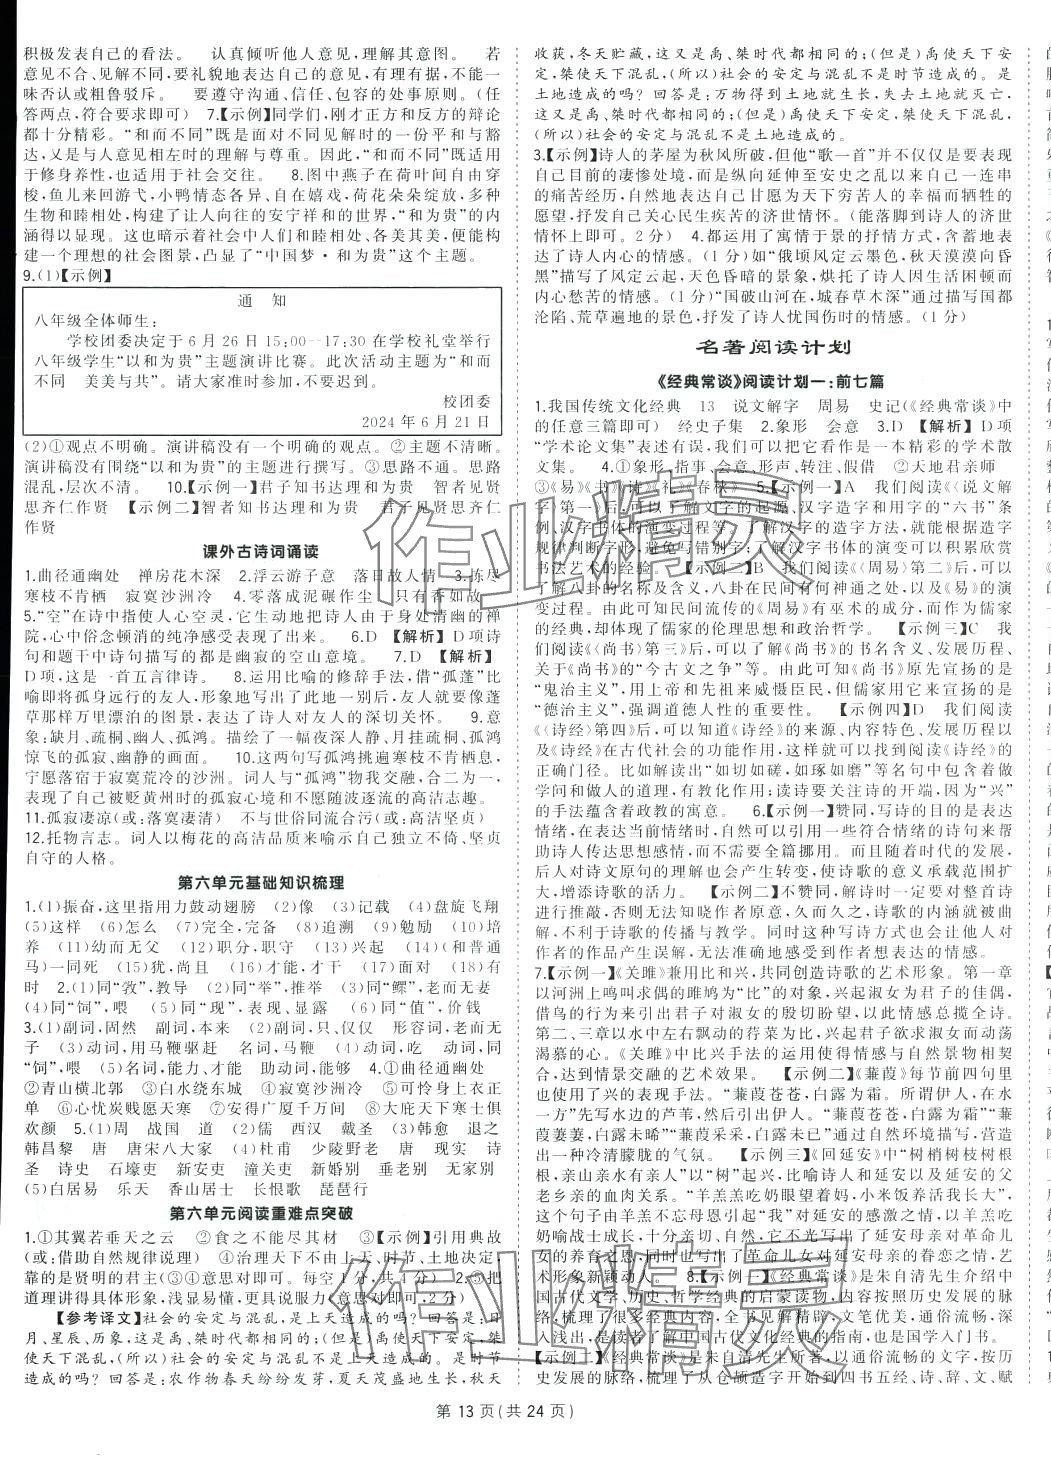 积极发表自己的看法。　认真倾听他人意见,理解其意图。　若
意见不合、见解不同,要礼貌地表达自己的意见,有理有据,不能一
味否认或粗鲁驳斥。　要遵守沟通、信任、包容的处事原则。(任
答两点,符合要求即可)　7.【示例】同学们,刚才正方和反方的辩论
都十分精彩。“和而不同”既是面对不同见解时的一份平和与豁
达,又是与人意见相左时的理解与尊重。因此,“和而不同”适用
于修身养性,也适用于社会交往。　8.图中燕子在荷叶间自由穿
梭,鱼儿来回游弋,小鸭情态各异、自在嬉戏,荷花朵朵绽放,多种
生物和睦相处,构建了让人向往的安宁祥和的世界,“和为贵”的内
涵得以显现。这也暗示着社会中人们和睦相处、各美其美,便能构
建一个理想的社会图景,凸显了“中国梦·和为贵”这个主题。
9.(1)【示例】
通　知
八年级全体师生:
学校团委决定于6月26日15:00--17:30在学校礼堂举行
八年级学生“以和为贵”主题演讲比赛。此次活动主题为“和而
不同　美美与共”。请大家准时参加,不要迟到。
校团委
2024年6月21日
(2)①观点不明确。演讲稿没有一个明确的观点。②主题不清晰。
演讲稿没有围绕“以和为贵”的主题进行撰写。③思路不通。思路
混乱,层次不清。　10.【示例一】君子知书达理和为贵　智者见贤
思齐仁作贤　【示例二】智者知书达理和为贵　君子见贤思齐仁
作贤
课外古诗词诵读
1.曲径通幽处　禅房花木深　2.浮云游子意　落日故人情　3.拣尽
寒枝不肯栖　寂寞沙洲冷　4.零落成泥碾作尘　只有香如故
5.“空”在诗中指使人心空灵,它生动地把诗人由于身处清幽的禅
院,心中俗念顿消的纯净感受表现了出来。　6.D　【解析】D项诗
句和题干中诗句描写的都是幽寂的空山意境。　7.D　【解析】
D项,这是一首五言律诗。　8.运用比喻的修辞手法,借“孤蓬”比
喻即将孤身远行的友人,形象地写出了此地一别后,友人就要像蓬
草那样万里漂泊的图景,表达了诗人对友人的深切关怀。　9.意
象:缺月、疏桐、幽人、孤鸿。描绘了一幅夜深人静、月挂疏桐、孤鸿
惊飞的孤寂、幽静的画面。　10.这两句写孤鸿挑遍寒枝不肯栖息,
宁愿落宿于寂寞荒冷的沙洲。词人与“孤鸿”物我交融,合二为一,
表现了自己在被贬黄州时的孤寂心境和不愿随波逐流的高洁志趣。
11.孤寂凄凉(或:落寞凄清)　不与世俗同流合污(或:高洁坚贞)
12.托物言志。词人以梅花的高洁品质来喻示自己独立不倚、坚贞
自守的人格。
第六单元基础知识梳理
1.(1)振奋,这里指用力鼓动翅膀　(2)像　(3)记载　(4)盘旋飞翔
(5)这样　(6)怎么　(7)完全,完备　(8)追溯　(9)勉励　(10)培
养　(11)幼而无父　(12)职分,职守　(13)兴起　(14)(和普通
马)一同死　(15)犹,尚且　(16)才能,才干　(17)通达　(18)有
时　2.(1)同“敩”,教导　(2)同“举”,推举　(3)同“鳏”,老而无妻
(4)同“饲”,喂　(5)同“现”,表现、显露　(6)同“值”,价钱
3.(1)副词,周然　副词,本来　(2)副词,只、仅仅　形容词,老而无
子　(3)动词,用马鞭驱赶　名词,马鞭　(4)动词,吃　动词,同
“饲”,喂　(5)名词,能力、才能　助动词,能够　4.①曲径通幽处
②青山横北郭　③白水绕东城　④寂寞沙洲冷　⑤可怜身上衣正
单　⑥心忧炭贱愿天寒　⑦安得广厦千万间　⑧大庇天下寒士俱
欢颜　5.(1)周　战国　道　(2)儒　西汉　戴圣　(3)韩愈　退之
韩昌黎　唐　唐宋八大家　(4)杜甫　少陵野老　唐　现实　诗
圣　诗史　石壕吏　新安吏　潼关吏　新婚别　垂老别　无家别
(5)白居易　乐天　香山居士　长恨歌　琵琶行
第六单元阅读重难点突破
1.①其翼若垂天之云　②食之不能尽其材　③【示例】引用典故
(或:借助自然规律说理)　④治理天下不由上天、时节、土地决定,
靠的是贤明的君主(③④意思对即可。每空1分,共4分)　2.⑤把
道理讲得具体形象,浅显易懂,更具说服力(意思对即可。2分)
【参考译文】社会的安定与混乱,是上天造成的吗?回答是:日
月、星辰、历象,这是禹、桀时代都相同的;(但是)禹使天下安定,桀
使天下混乱,(所以)社会的安定与混乱不是上天造成的。是时节
造成的吗?回答是:农作物春天纷纷发芽,夏天茂盛地生长,秋天
收获,冬天贮藏,这又是禹、桀时代都相同的;(但是)禹使天下安
定,桀使天下混乱,(所以)社会的安定与混乱不是时节造成的。是
土地造成的吗?回答是:万物得到土地就生长,失去土地就灭亡,
这又是禹、桀时代都相同的;(但是)禹使天下安定,桀使天下混乱,
(所以)社会的安定与混乱不是土地造成的。
3.【示例】诗人的茅屋为秋风所破,但他“歌一首”并不仅仅是要表现
自己目前的凄惨处境,而是纵向延伸至安史之乱以来自己一连串
的痛苦经历,自然地表达了自己甘愿为天下穷苦人的幸福而牺牲的
愿望,抒发自己关心民生疾苦的济世情怀。(能落脚到诗人的济世
情怀上即可。2分)　4.都运用了寓情于景的抒情方式,含蓄地表
达了诗人内心的情感。(1分)如“俄顷风定云墨色,秋天漠漠向昏
黑”描写了风定云起,天色昏暗的景象,烘托了诗人因生活困顿而
内心愁苦的情感。(1分)“国破山河在,城春草木深”通过描写国都
沦陷、荒草遍地的景色,抒发了诗人忧国伤时的情感。(1分)
名著阅读计划
《经典常谈》阅读计划一:前七篇
1.我国传统文化经典　13　说文解字　周易　史记(《经典常谈》中
的任意三篇即可)　经史子集　2.象形　会意　3.D　【解析】D项
“学术论文集”表述有误,我们可以把它看作是一本精彩的学术散
文集。　4.①象形、指事、会意、形声、转注、假借　②天地君亲师
③《易》《书》《诗》《礼》《春秋》　5.【示例一】A　我们阅读《〈说文解
字〉第一》后,可以了解文字的起源、汉字造字和用字的“六书”条
例、汉字书体的演变过程等。了解汉字的造字方法,就能根据造字
规律判断字形,避免写错别字;了解汉字书体的演变可以积累欣赏
书法艺术的经验。　【示例二】B　我们阅读《〈周易〉第二》后,可以
了解八卦的名称及含义,八卦在日常生活中有何神通之处,以及《易》的演
变过程。由此可知民间流传的《周易》有巫术的成分,而作为儒家
的经典,却体现了儒家的伦理思想和政治哲学。　【示例三】C　我
们阅读《〈尚书〉第三》后,可以了解《尚书》的书名含义、发展历程、
关于《尚书》的“今古文之争”等。由此可知《尚书》原先宣扬的是
“鬼治主义”,用上帝和先祖来威慑臣民,但儒家兴起后宣扬的是
“德治主义”,强调道德人性的重要性。　【示例四】D　我们阅读
《〈诗经〉第四》后,可以知道《诗经》的来源、内容特色、发展历程以
及《诗经》在古代社会的功能作用,这样就可以找到阅读《诗经》的
正确门径。比如解读出“如切如磋,如琢如磨”等名句中包含着做
学问和做人的道理,有教化作用;读诗要关注诗的开端,因为“兴”
的手法蕴含着政教的寓意。　6.【示例一】赞同,写诗的目的是表达
情绪,在表达当前情绪时,自然可以引用一些符合情绪的诗句来帮
助诗人传达思想感情,而不需要全篇挪用。而且随着时代的发展,
后人对诗文原句的理解也会产生转变,使诗歌的意义承载范围扩
大,增添诗歌的活力。　【示例二】不赞同,解诗时一定要对整首诗
进行推敲,否则无法知晓作者原意,久而久之,诗歌的内涵就被曲
解,不利于诗歌的传播与教学。同时这种写诗方式也会让他人对
作者的作品产生误解,无法准确地感受到作者想表达的情感。
7.【示例一】《关雎》兼用比和兴,共同创造诗歌的艺术形象。第一章
以河洲上鸣叫求偶的雎鸠为“比”的对象,兴起淑女为君子的佳偶,
借鸟的行为来引出君子对淑女的殷切盼望,以此情感总揽全诗。
第二、三章以水中左右飘动的荇菜为比,兴起君子欲求淑女而动荡
渴慕的心。《关雎》中比兴手法的运用使得情感与自然景物相契
合,达到情景交融的艺术效果。　【示例二】《蒹葭》每节前四句里
也使用了兴的表现手法。“蒹葭苍苍,白露为霜。所谓伊人,在水
一方”先写水边的芦苇,然后引出伊人。“蒹葭苍苍,白露为霜”“蒹
葭萋萋,白露未晞”“蒹葭采采,白露未已”通过自然环境描写,营造
出一种冷清朦胧的气氛。　【示例三】《回延安》中“树梢树枝树根
根,亲山亲水有亲人”以“树”起兴,比喻诗人和延安以及延安的父
老乡亲的血肉关系。“羊羔羔吃奶眼望着妈,小米饭养活我长大”,
这个句子由羊羔不忘哺育之恩起兴,引起“我”对延安的感激之情,以羊羔吃
奶喻战士成长,十分亲切、自然,它既写出了延安母亲对革命儿
女的养育之恩,同时,也写出了革命儿女对延安母亲的眷恋之情,艺
术形象新颖动人。　8.【示例一】《经典常谈》是朱自清先生介绍中
国文学、历史、哲学经典的启蒙读物,内容按照中国历史发展的脉
络,梳理了很多经典内容,全书见解精辟,文笔优美,通俗流畅,深
入浅出,是读者了解中国古代文化经典的指南,也是国学入门书。
【示例二】《经典常谈》是朱自清先生所著,以通俗流畅的文字,按历
史发展的脉络,梳理了从仓颉造字开始到四书五经、诗、辞、文、赋
第 13 页(共 24 页)
作业精灵
作业精灵